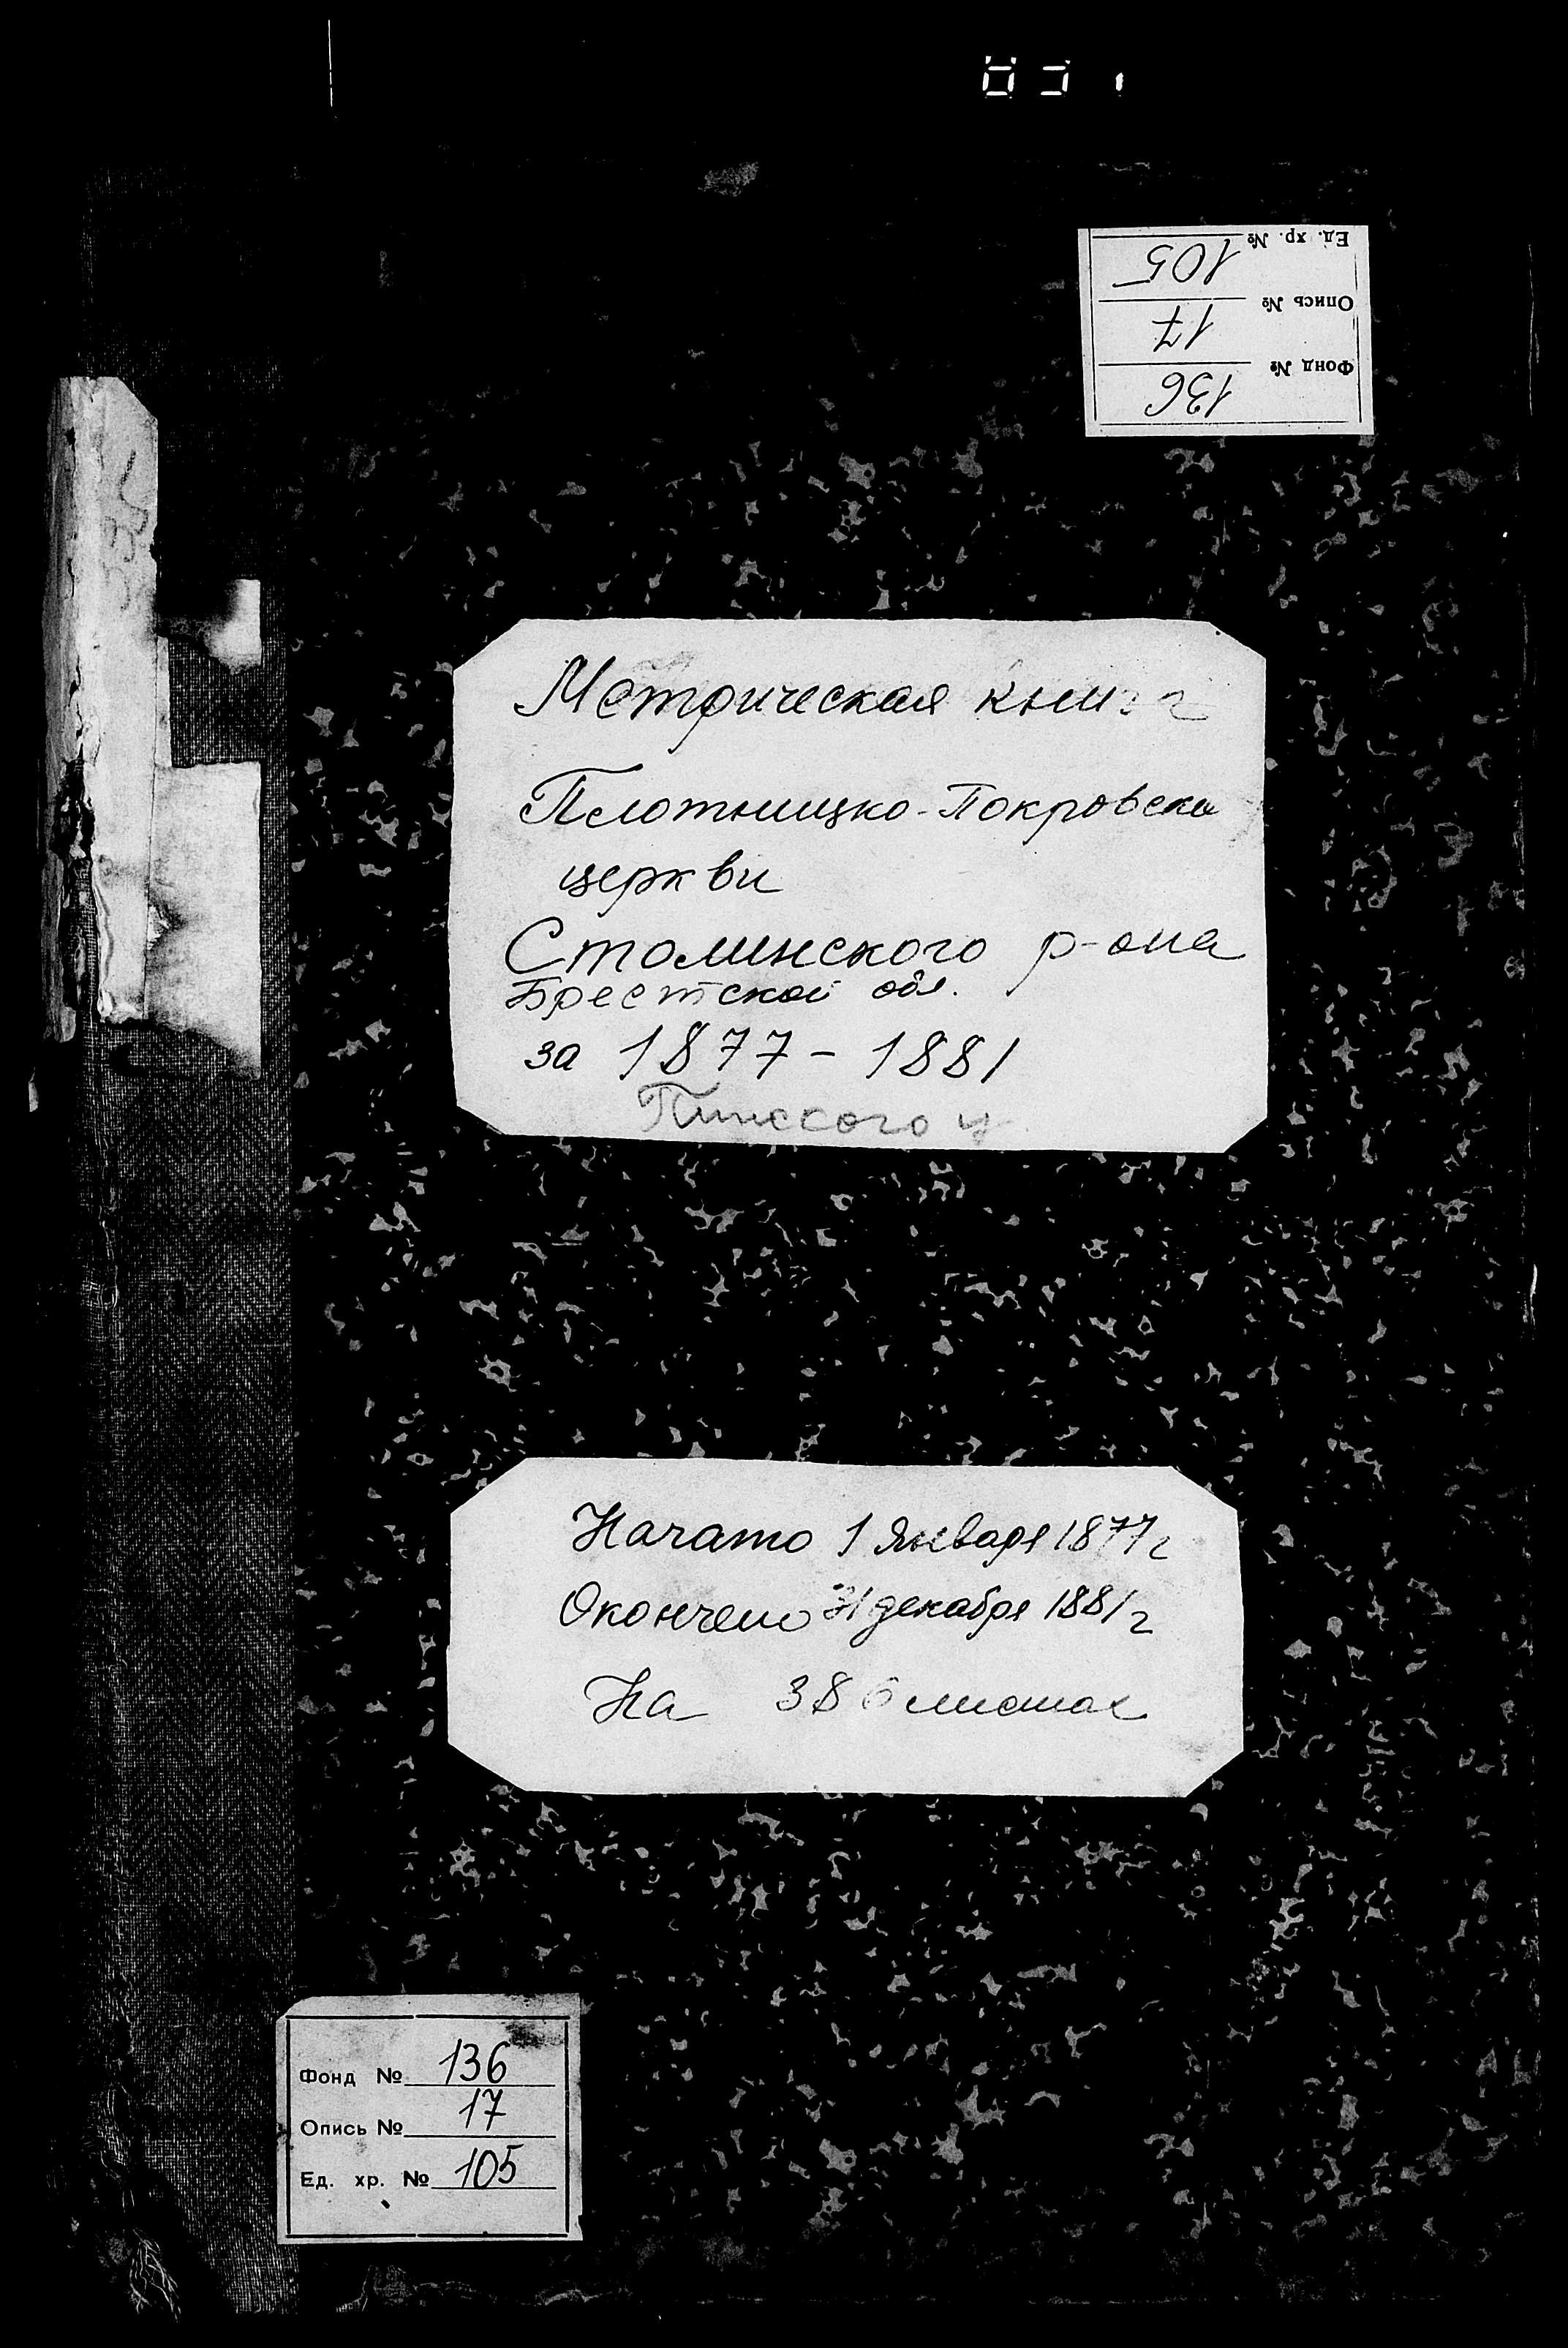 Ед. хр. № 105
Опись № 17
Фонд № 136
Метрическая книга
Плотницко-Покровской
церкви
Столинского р-она
Брестской обл.
за 1877-1881
Пинского у
Начато 1 Января 1877 г
Окончено 31 декабря 1881 г
На 386 листах
Фонд № 136
Опись № 17
Ед. хр. № 105